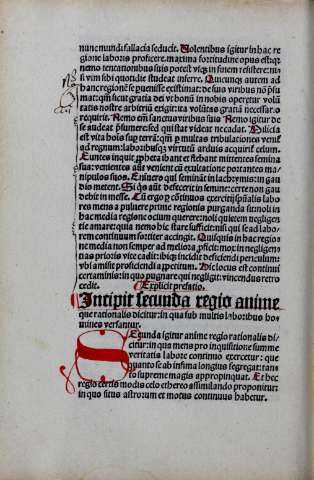 nunc mundi fallacia seducit. Volentibus igitur in hac re
gione laboris proficere. maxima fortitudine opus est: qr
nemo tentationibus suis potest vsq; in finem resistere: ni
si vim sibi quotidie studeat inferre. Quicunq; autem ad
hanc regionē se puenisse existimat: de suis viribus nō psu
mat: qm̄ sicut gratia dei vt bonū in nobis operetur volū
tatis nostre arbitriū exigit: ita volūtas gratiā necessario
requirit. Nemo em̄ sanctus viribus suis Nemo igitur de
se audeat psumere: sed qui stat videat ne cadat. Milicia
est vita hoīs sup terrā: qm̄ p multas tribulationes veniē
ad regnum: laboribusq; virtutū arduis acquirit celum.
Euntes inquit ppheta ibant et flebant mittentes semina
sua: venientes aūt venient cū exultatione portantes ma
nipulos suos. Eni uero qui seminat in lachrymis: in gau
dio metent. Si qd aūt defecerit in semine: certe non gau
debit in messe. Cū ergo desinuos exercitij spūalis labo
res mens apuluere prime regionis purganda sumoli in
hac media regione ocium querere: noli quietem negligen
tie amare: quia nemo hic stare sufficit: nisi qui se ad labo
rem continuum fortiter accingit. Quisquis in hac regio
ne media non semper ad meliora pficit: mox in negligen
tias prioris vite cadit: ibiq; incidit deficiendi periculum:
vbi amisit proficiendi appetitum. Hic locus est continui
certaminis: in quo pugnare qui negligit: vincendus retro
cedit. Explicit prefatio.
Incipit secunda regio anime
que rationalis dicitur: In qua sub multis laboribus ho
mines versantur.
SEcunda igitur anime regio rationalis di
citur: in qua mens pro inquisitione summe
veritatis labore continuo exercetur: que
quanto se ab infima longius segregat: tan
to supreme magis appropinquat. Et hec
regio certis modis celo ethereo assimilando proponitur:
in quo situs astrorum et motus continuus habetur.